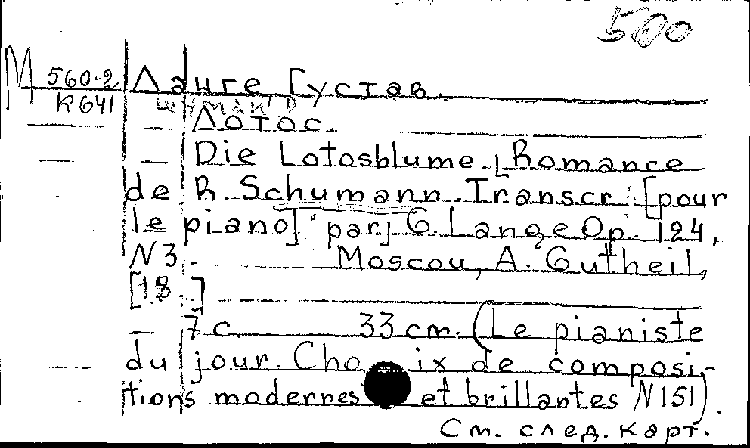 500
М 560-2 Ланге Густав.
К 641 ШУМАН Р
Лотос.
Die Lotosblume. [Romance
de R. Schumann. Transcr. [pour
le piano] par] G. Lange Op. 124,
N 3. Moscou, A. Gutheil,
[18 .]
7 с. 33 cm. (Le pianiste
du jour. Choix de composi-
tions modernes et brillantes N 151).
См. след. карт.